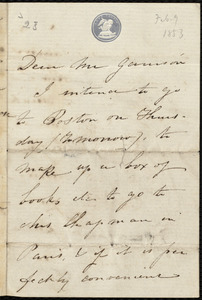 23
Feb 9
1853
Dear Mr Garrison
I intend to go
to Boston on Thurs-
day (tomorrow), to
make up a box of
books etc. to go to
Mrs. Chapman in
Paris, & if it is per
fectly convenient